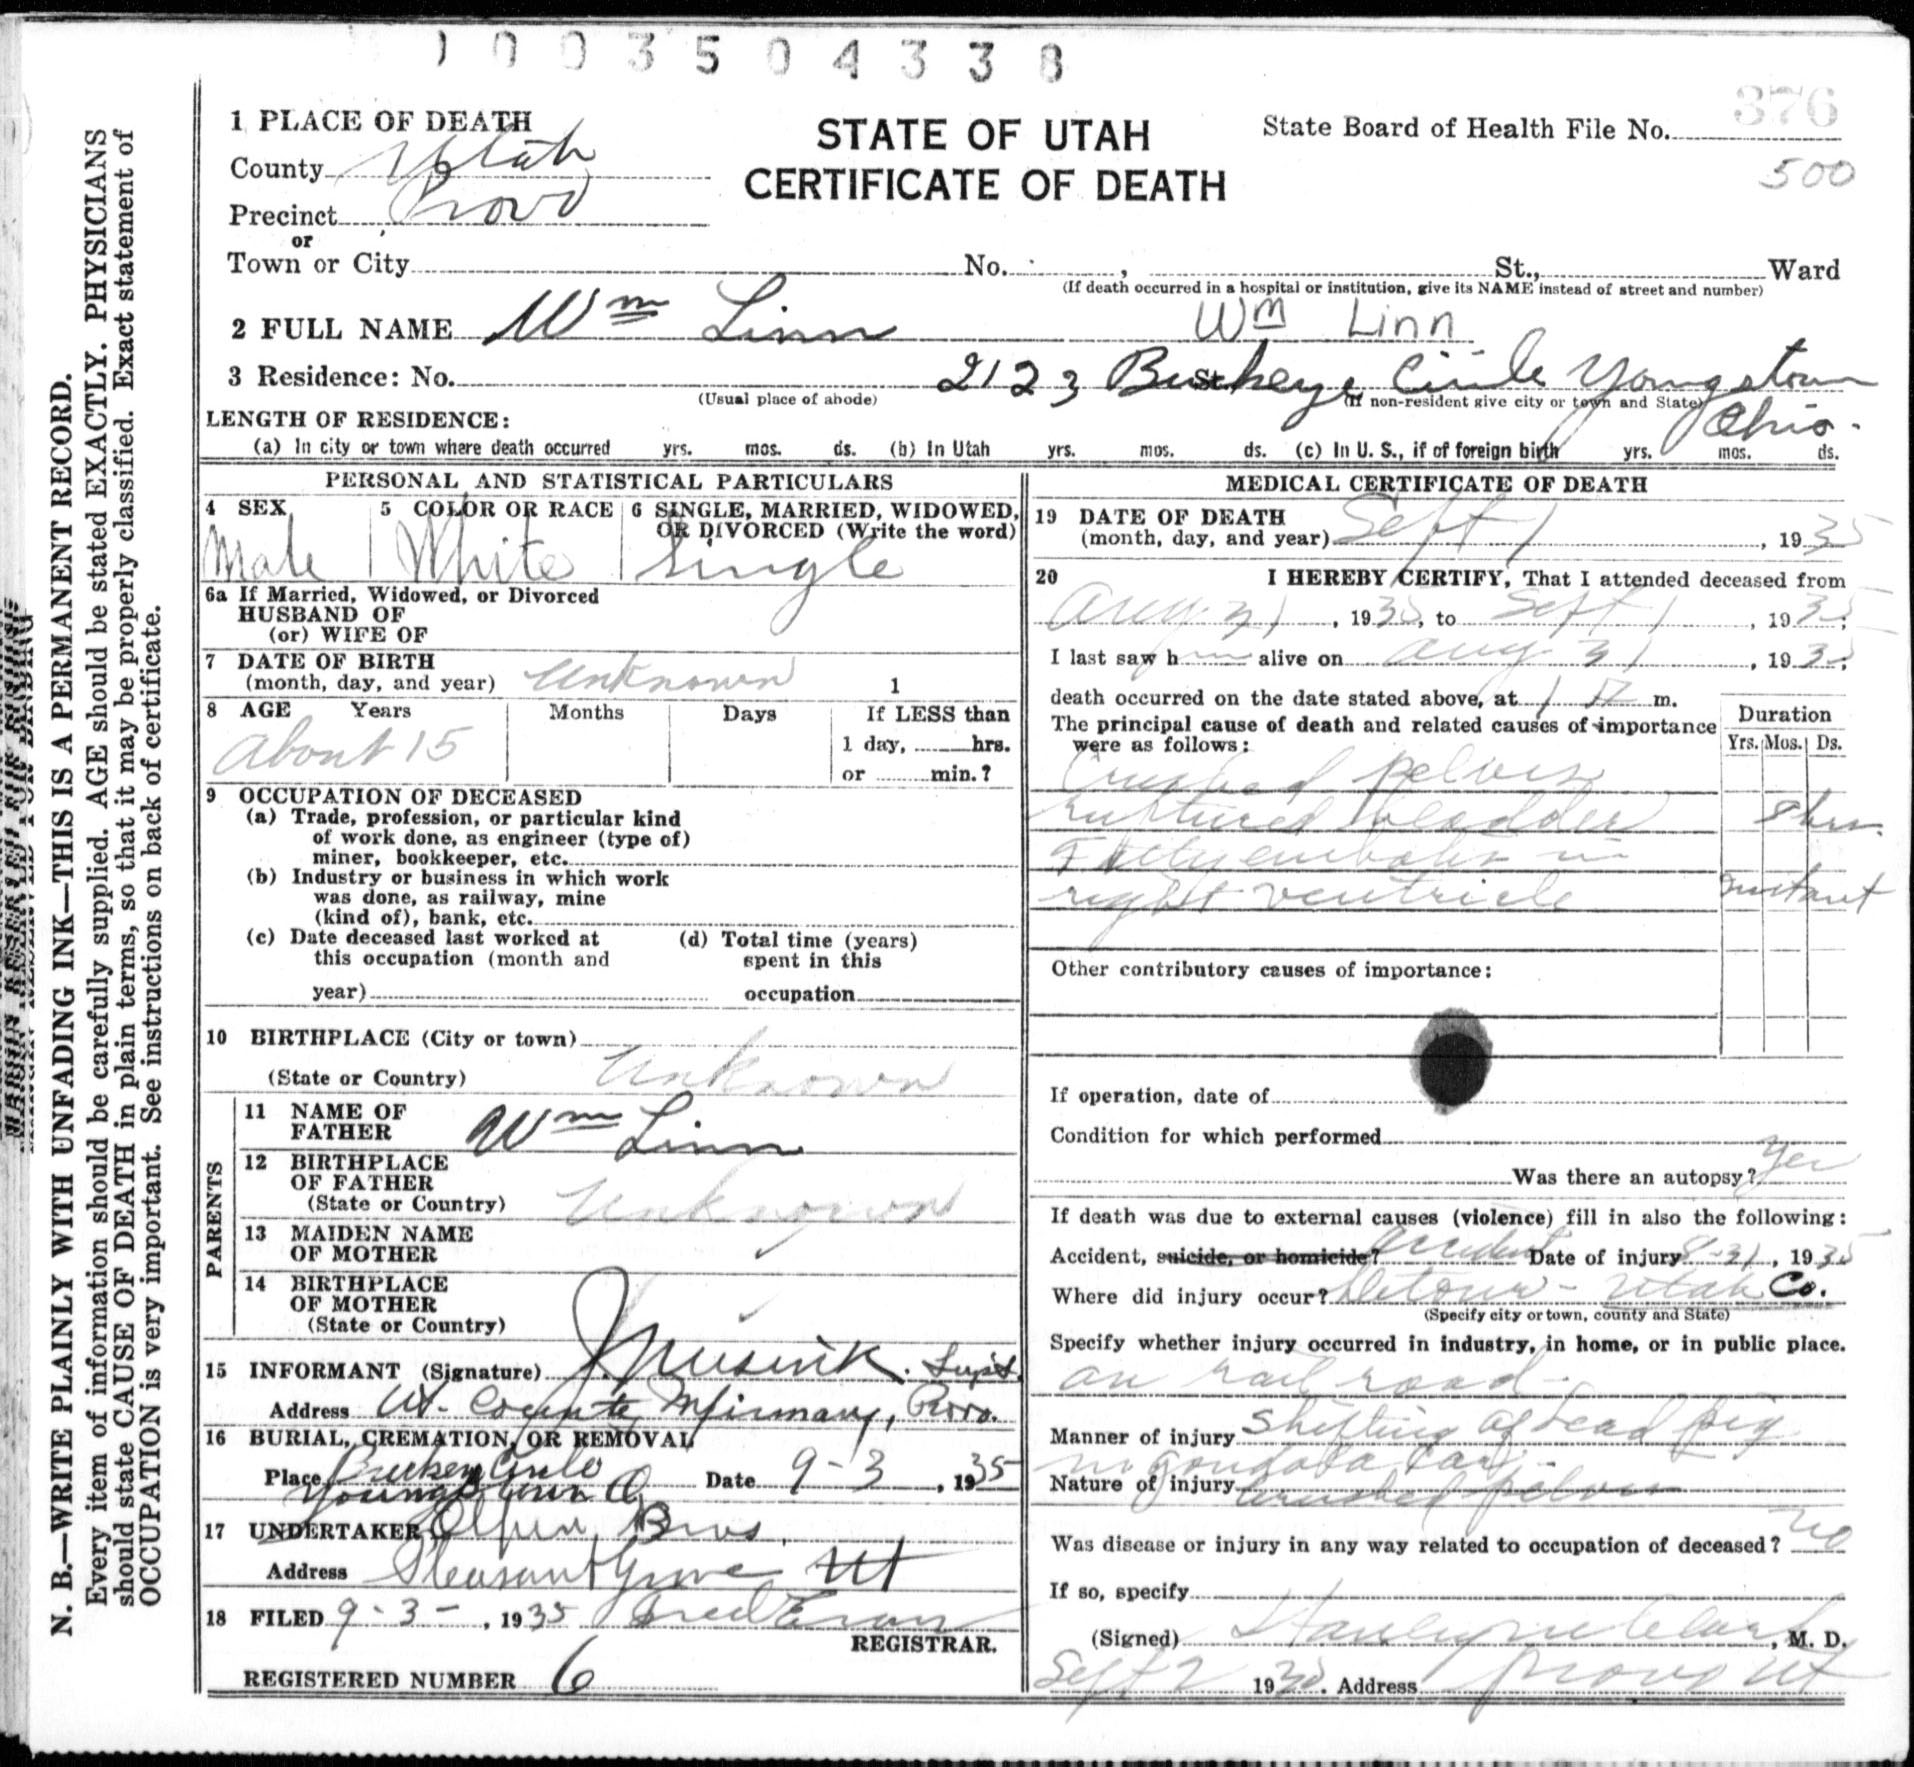 1003504338
1 PLACE OF DEATH
STATE OF UTAH
CERTIFICATE OF DEATH
State Board of Health File No. 376
500
County Utah
Precinct Provo
or
Town or City No. , St., Ward
(If death occurred in a hospital or institution, give its NAME instead of street and number)
2 FULL NAME Wm Linn Wm Linn
3 Residence: No. 2123 St. Circle Youngstown
(Usual place of abode) (If non-resident give city or town and State) Ohio.
LENGTH OF RESIDENCE:
(a) In city or town where death occurred yrs. mos. ds. (b) In Utah yrs. mos. ds. (c) In U. S., if of foreign birth yrs. mos. ds.
PERSONAL AND STATISTICAL PARTICULARS
4 SEX 5 COLOR OR RACE 6 SINGLE, MARRIED, WIDOWED, OR DIVORCED (Write the word)
Male White Single
6a If Married, Widowed, or Divorced
HUSBAND OF
(or) WIFE OF
7 DATE OF BIRTH
(month, day, and year) Unknown 1
8 AGE Years Months Days If LESS than
About 15 1 day, hrs.
or min.?
9 OCCUPATION OF DECEASED
(a) Trade, profession, or particular kind
of work done, as engineer (type of)
miner, bookkeeper, etc.
(b) Industry or business in which work
was done, as railway, mine
(kind of), bank, etc.
(c) Date deceased last worked at (d) Total time (years)
this occupation (month and spent in this
year) occupation
10 BIRTHPLACE (City or town)
(State or Country) Unknown
PARENTS
11 NAME OF
FATHER Wm Linn
12 BIRTHPLACE
OF FATHER
(State or Country) Unknown
13 MAIDEN NAME
OF MOTHER
14 BIRTHPLACE
OF MOTHER
(State or Country)
15 INFORMANT (Signature) Supt.
Address Ut. County Infirmary, Provo.
16 BURIAL, CREMATION, OR REMOVAL
Place Circle Date 9-3, 1935
Youngstown O
17 UNDERTAKER Olpin Bros
Address Pleasant Grove Ut
18 FILED 9-3-, 1935 Fred Evans
REGISTRAR.
REGISTERED NUMBER 6
MEDICAL CERTIFICATE OF DEATH
19 DATE OF DEATH
(month, day, and year) Sept 1, 1935
20 I HEREBY CERTIFY, That I attended deceased from
Aug. 31, 1935, to Sept 1, 1935;
I last saw him alive on Aug 31, 1935;
death occurred on the date stated above, at 1 A m.
The principal cause of death and related causes of importance
were as follows:
Duration
Yrs. Mos. Ds.
Crushed pelvis
ruptured bladder 8 hrs.
Fatty embolis in
right ventricle instant
Other contributory causes of importance:
If operation, date of
Condition for which performed
Was there an autopsy? Yes
If death was due to external causes (violence) fill in also the following:
Accident, suicide, or homicide? Accident Date of injury 8-31, 1935
Where did injury occur? Utah Co.
(Specify city or town, county and State)
Specify whether injury occurred in industry, in home, or in public place.
on rail road -
Manner of injury Shifting of lead pig
in gondola car -
Nature of injury crushed pelvis
Was disease or injury in any way related to occupation of deceased? no
If so, specify
(Signed) , M. D.
Sept 2 1935. Address Provo Ut
N. B.—WRITE PLAINLY WITH UNFADING INK—THIS IS A PERMANENT RECORD.
Every item of information should be carefully supplied. AGE should be stated EXACTLY. PHYSICIANS
should state CAUSE OF DEATH in plain terms, so that it may be properly classified. Exact statement of
OCCUPATION is very important. See instructions on back of certificate.
MARGIN RESERVED FOR BINDING